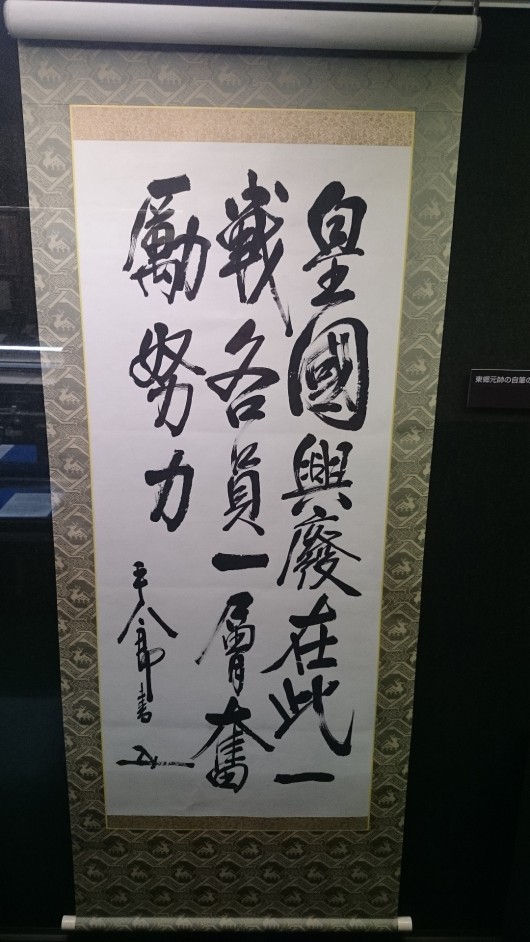 皇國興廢在此一
戰各員一層奮
勵努力
平八郎書
東郷元帥の自筆の